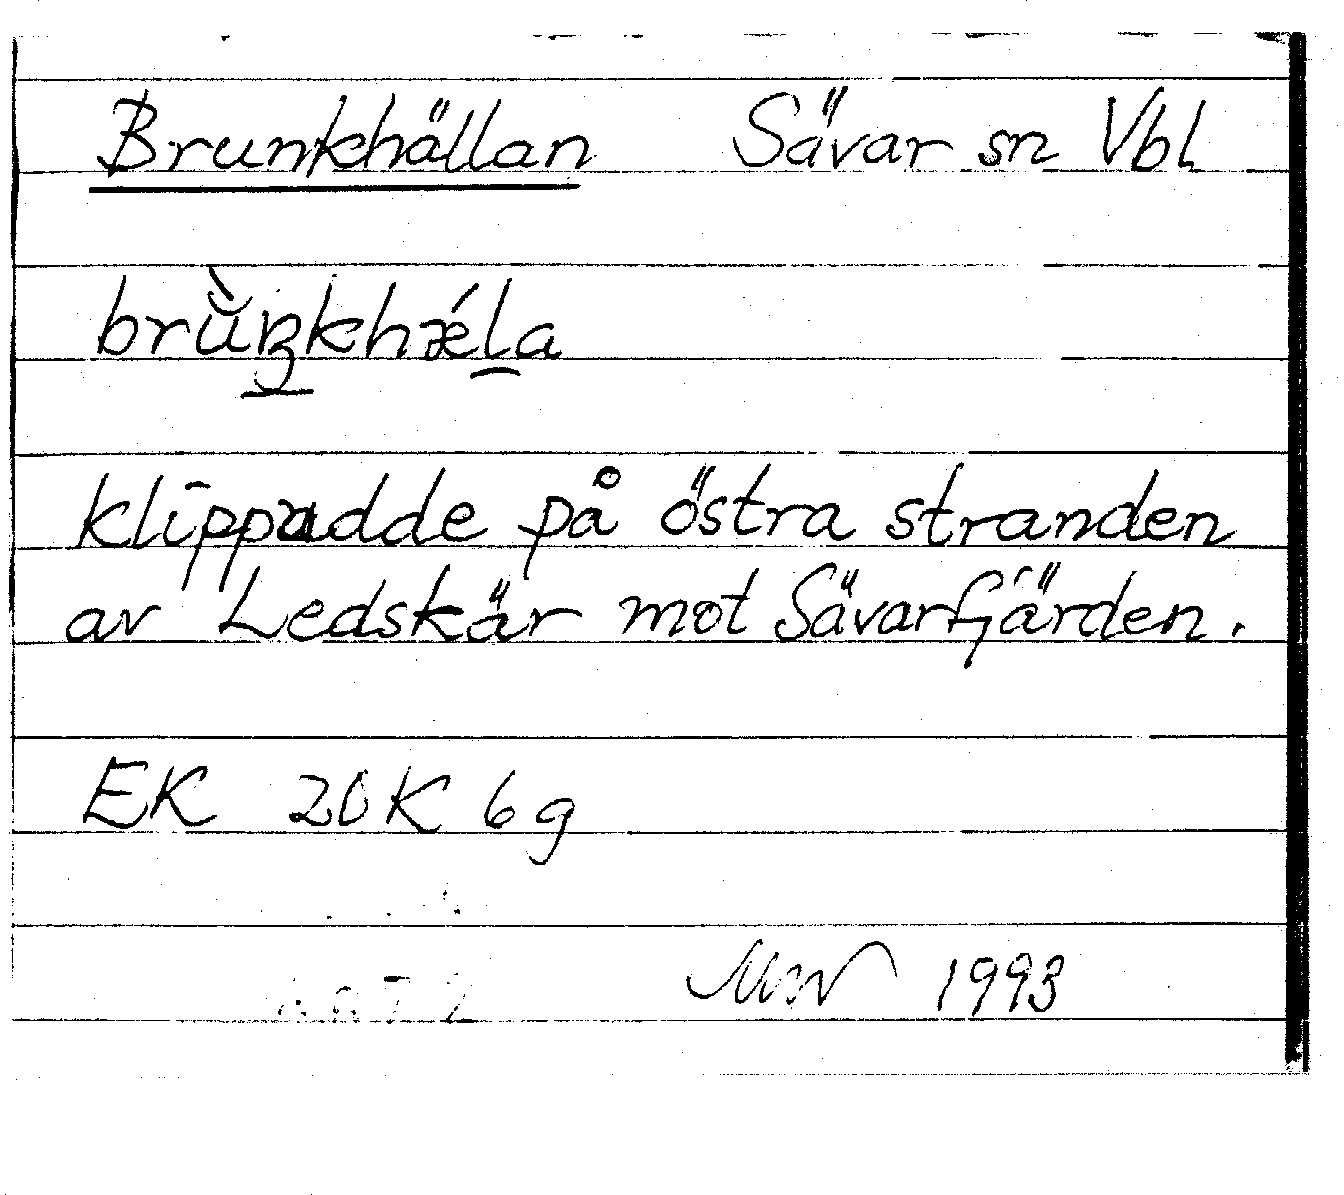 Brunkhällan Sävar sn Vbl
brùŋkhǽla
klippudde på östra stranden
av Ledskär mot Sävarfjärden.
EK 20K 6g
1993